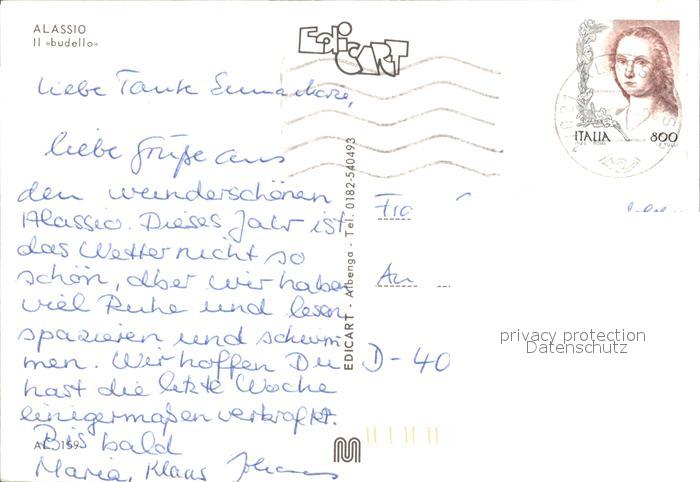 ALASSIO
Il «budello»
EdiCART
ITALIA 800
Liebe Tante Annemarie,
liebe Grüße aus
den wunderschönen
Alassio. Dieses Jahr ist
das Wetter nicht so
schön, aber wir haben
viel Ruhe und lesen
spazieren und schwim
men. Wir hoffen Du
hast die letzte Woche
einigermaßen verkraftet.
Bis bald
Maria, Klaus Johannes
AL 159
EDICART - Albenga - Tel. 0182-540493
Fra
An
D-40
privacy protection
Datenschutz